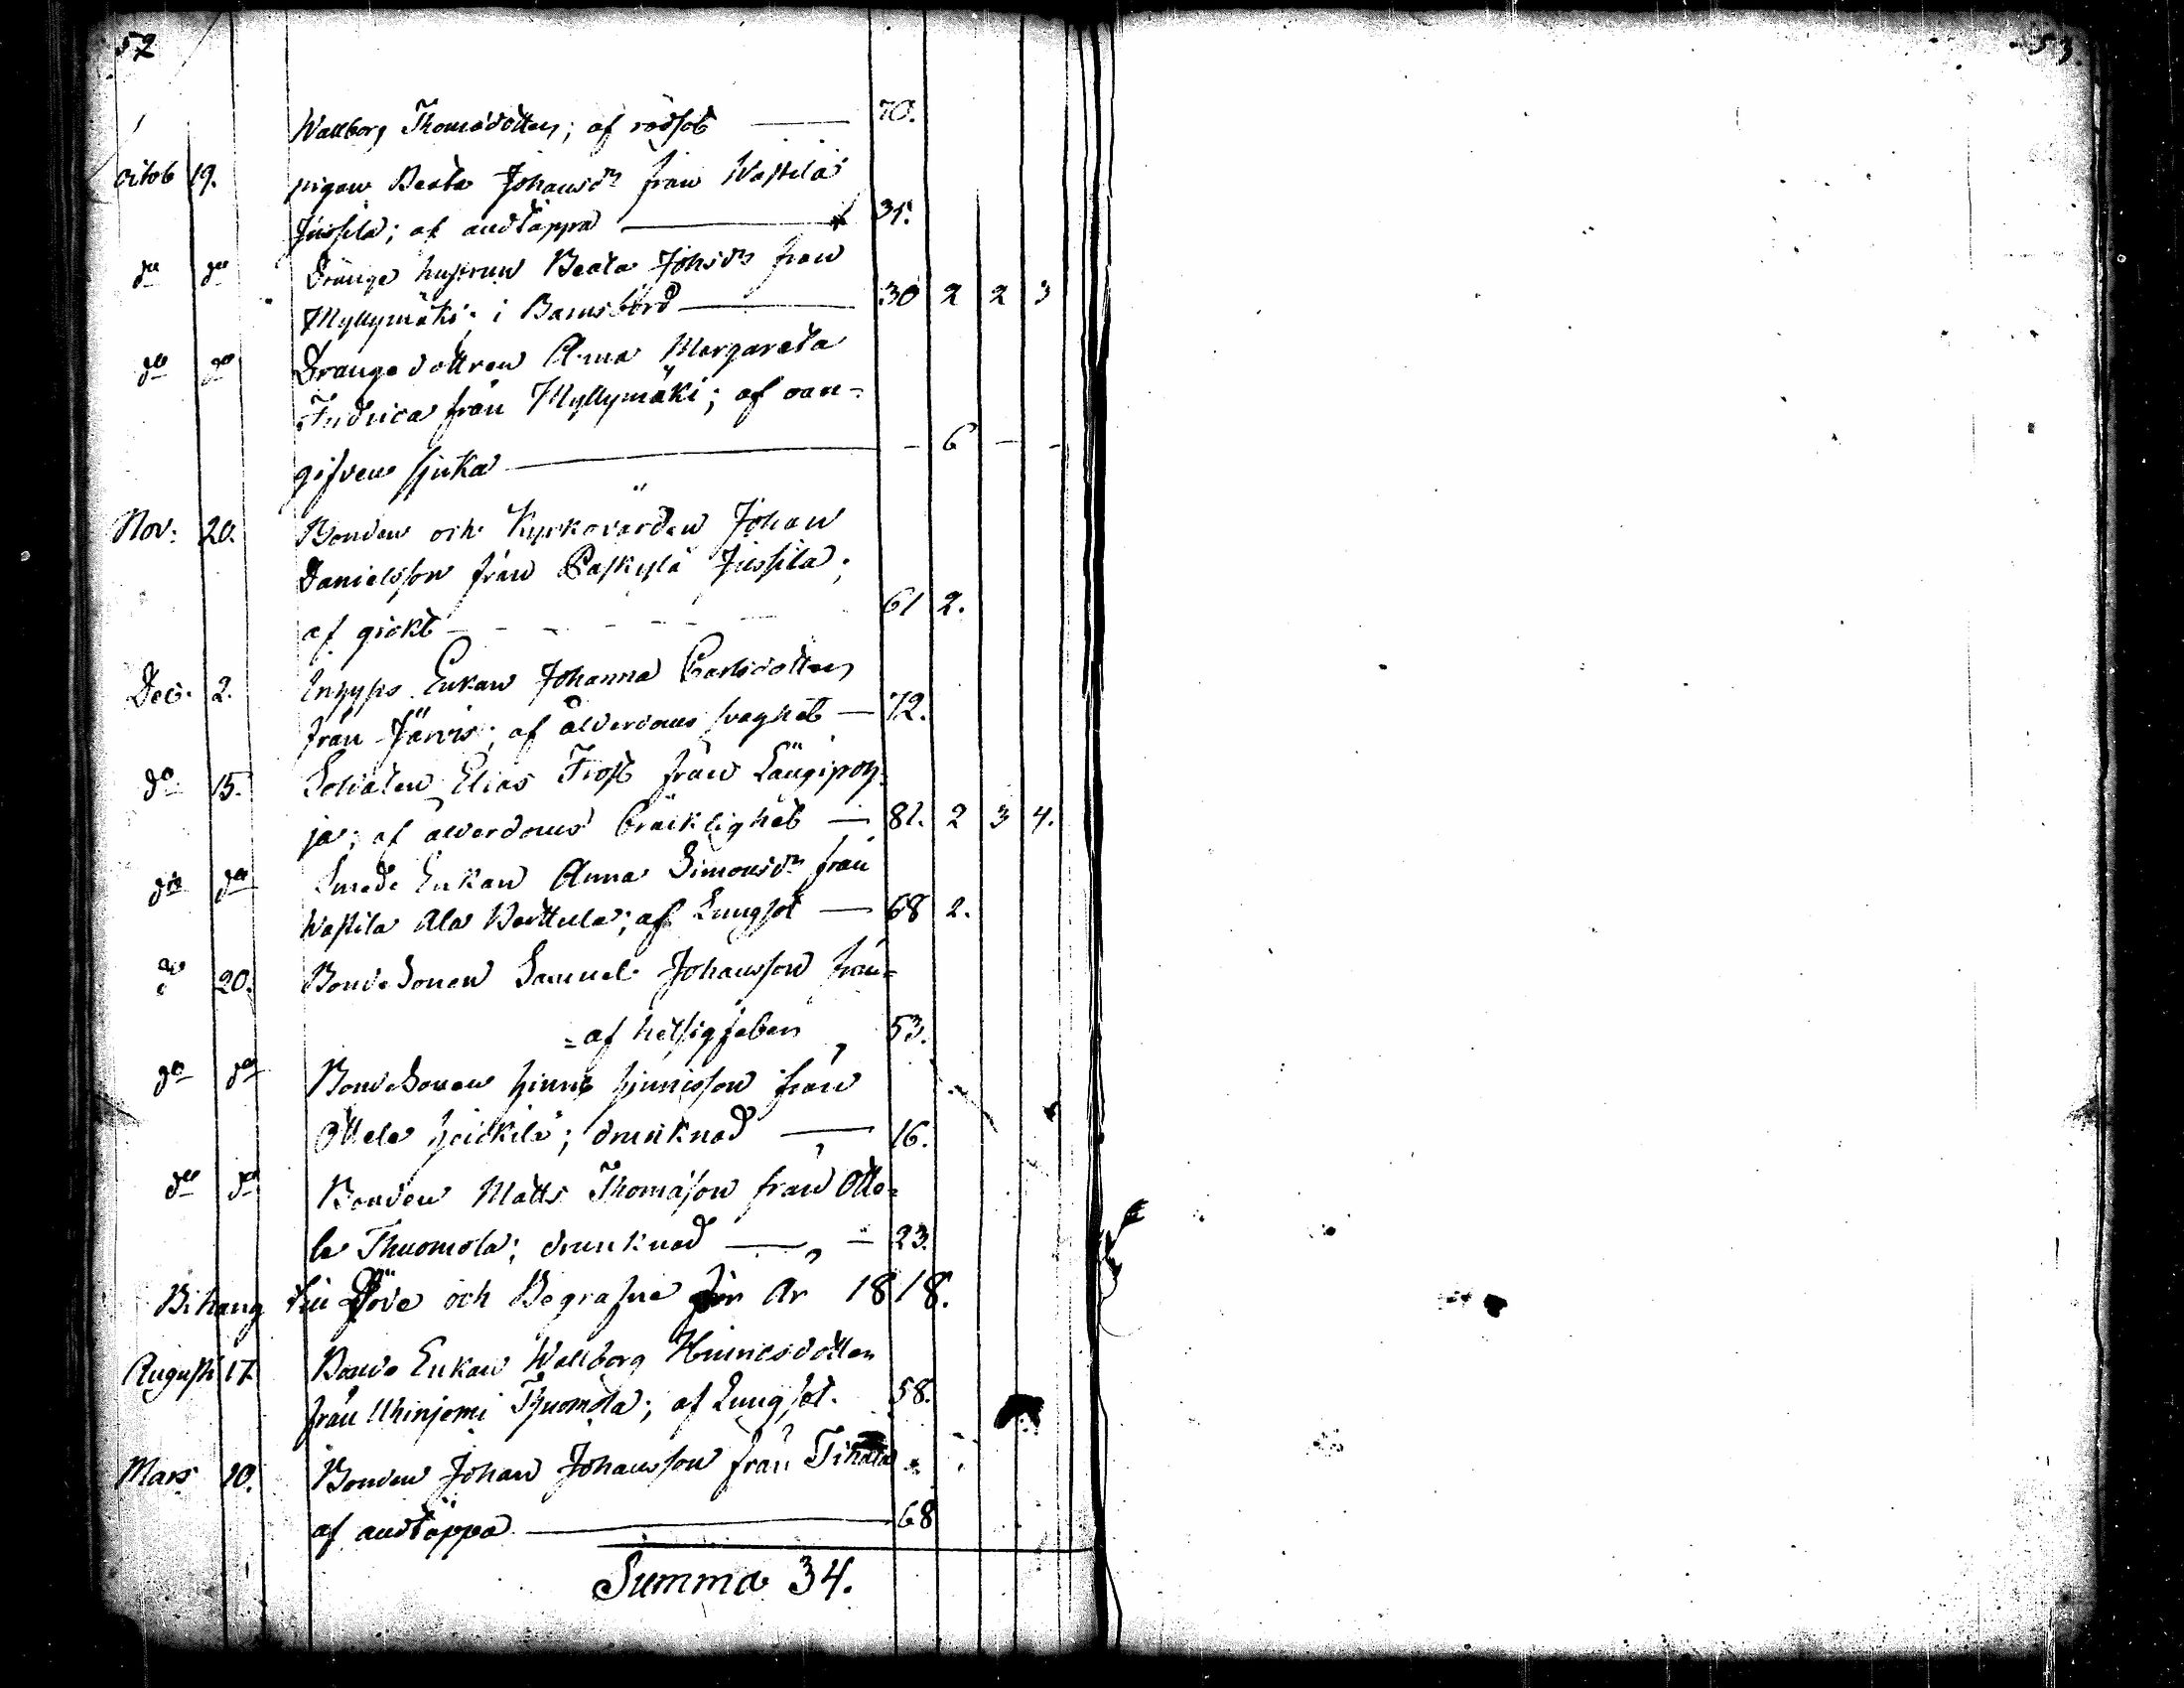 52
53.
Wallborg Thomædotter; af rödsot — 70.
Octob 19. pigan Beata Johansdr från Wastila
Jussila; af andtäppa — 31.
do do Drängehustrun Beata Johsdr från
Myllymäki; i Barnsbörd — 30 2 2 3
do do Drängedottren Anna Margareta
Fridrica från Myllymäki; af oan-
gifven sjuka — - 6 - -
Nov: 20. Bonden och Kyrkovärden Johan
Danielsson från Paskylä Jussila;
af gickt - - - - - 61 2.
Dec: 2. Inhyses Enkan Johanna Carlsdotter
från Järvis; af ålderdoms svaghet — 72.
do 15. Soldaten Elias Frost från Längipoh-
ja; af ålderdoms bräcklighet — 81. 2 3 4.
do do Smeds Enkan Anna Simonsdr från
Wastila Ala Werttula; af Lungsot — 68 2.
do 20. Bonde Sonen Samuel Johansson från=
=af hetsigfeber „ 53.
do do Bonde Sonen Hinric Hinricsson från
Ottela Heickilä; drunknad — 16.
do do Bonden Matts Thomasson från Otte=
la Thuomola; drunknad — „ - 23.
Bihang till Döde och Begrafne för År 1818.
Augusti 17. Bonde Enkan Wallborg Hinricsdotter
från Uhinjemi Thuomola; af Lungsot. 58.
Mars 10. Bonden Johan Johansson från
af andtäppa — 68
Summa 34.